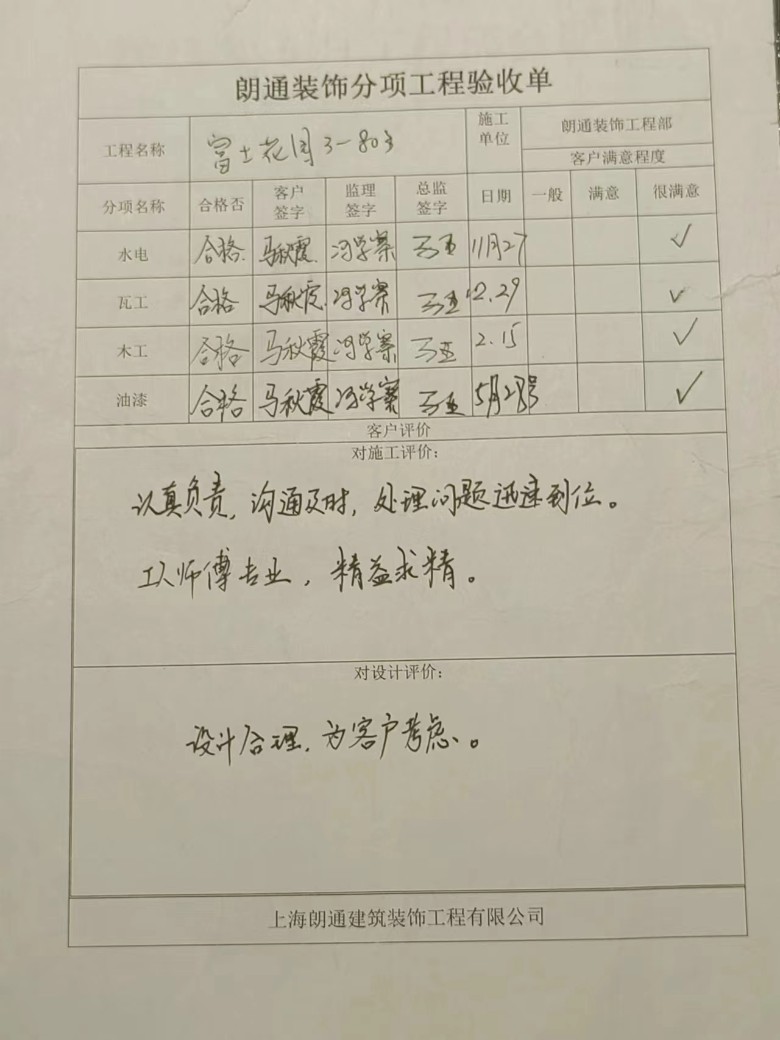 朗通装饰分项工程验收单
工程名称 富士花园3-803 施工单位 朗通装饰工程部
客户满意程度
分项名称 合格否 客户签字 监理签字 总监签字 日期 一般 满意 很满意
水电 合格 马秋霞 冯学寨 11月27 ✓
瓦工 合格 马秋霞 冯学寨 12.29 ✓
木工 合格 马秋霞 冯学寨 2.15 ✓
油漆 合格 马秋霞 冯学寨 5月28号 ✓
客户评价
对施工评价:
认真负责,沟通及时,处理问题迅速到位。
工人师傅专业,精益求精。
对设计评价:
设计合理,为客户考虑。
上海朗通建筑装饰工程有限公司